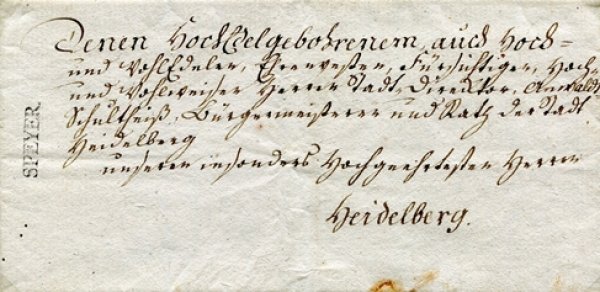 Denen HochEdelgebohrenem auch Hoch=
und WohlEdelen, Ehrenvesten, Fürsichtigen, Hoch-
und Wohlweisen Herren Stadt Director, Anwaldt
Schultheiß, Bürgermeisteren und Rath der Stadt
Heidelberg
unseren insonders Hochgeehrtesten Herren
Heidelberg.
SPEYER.